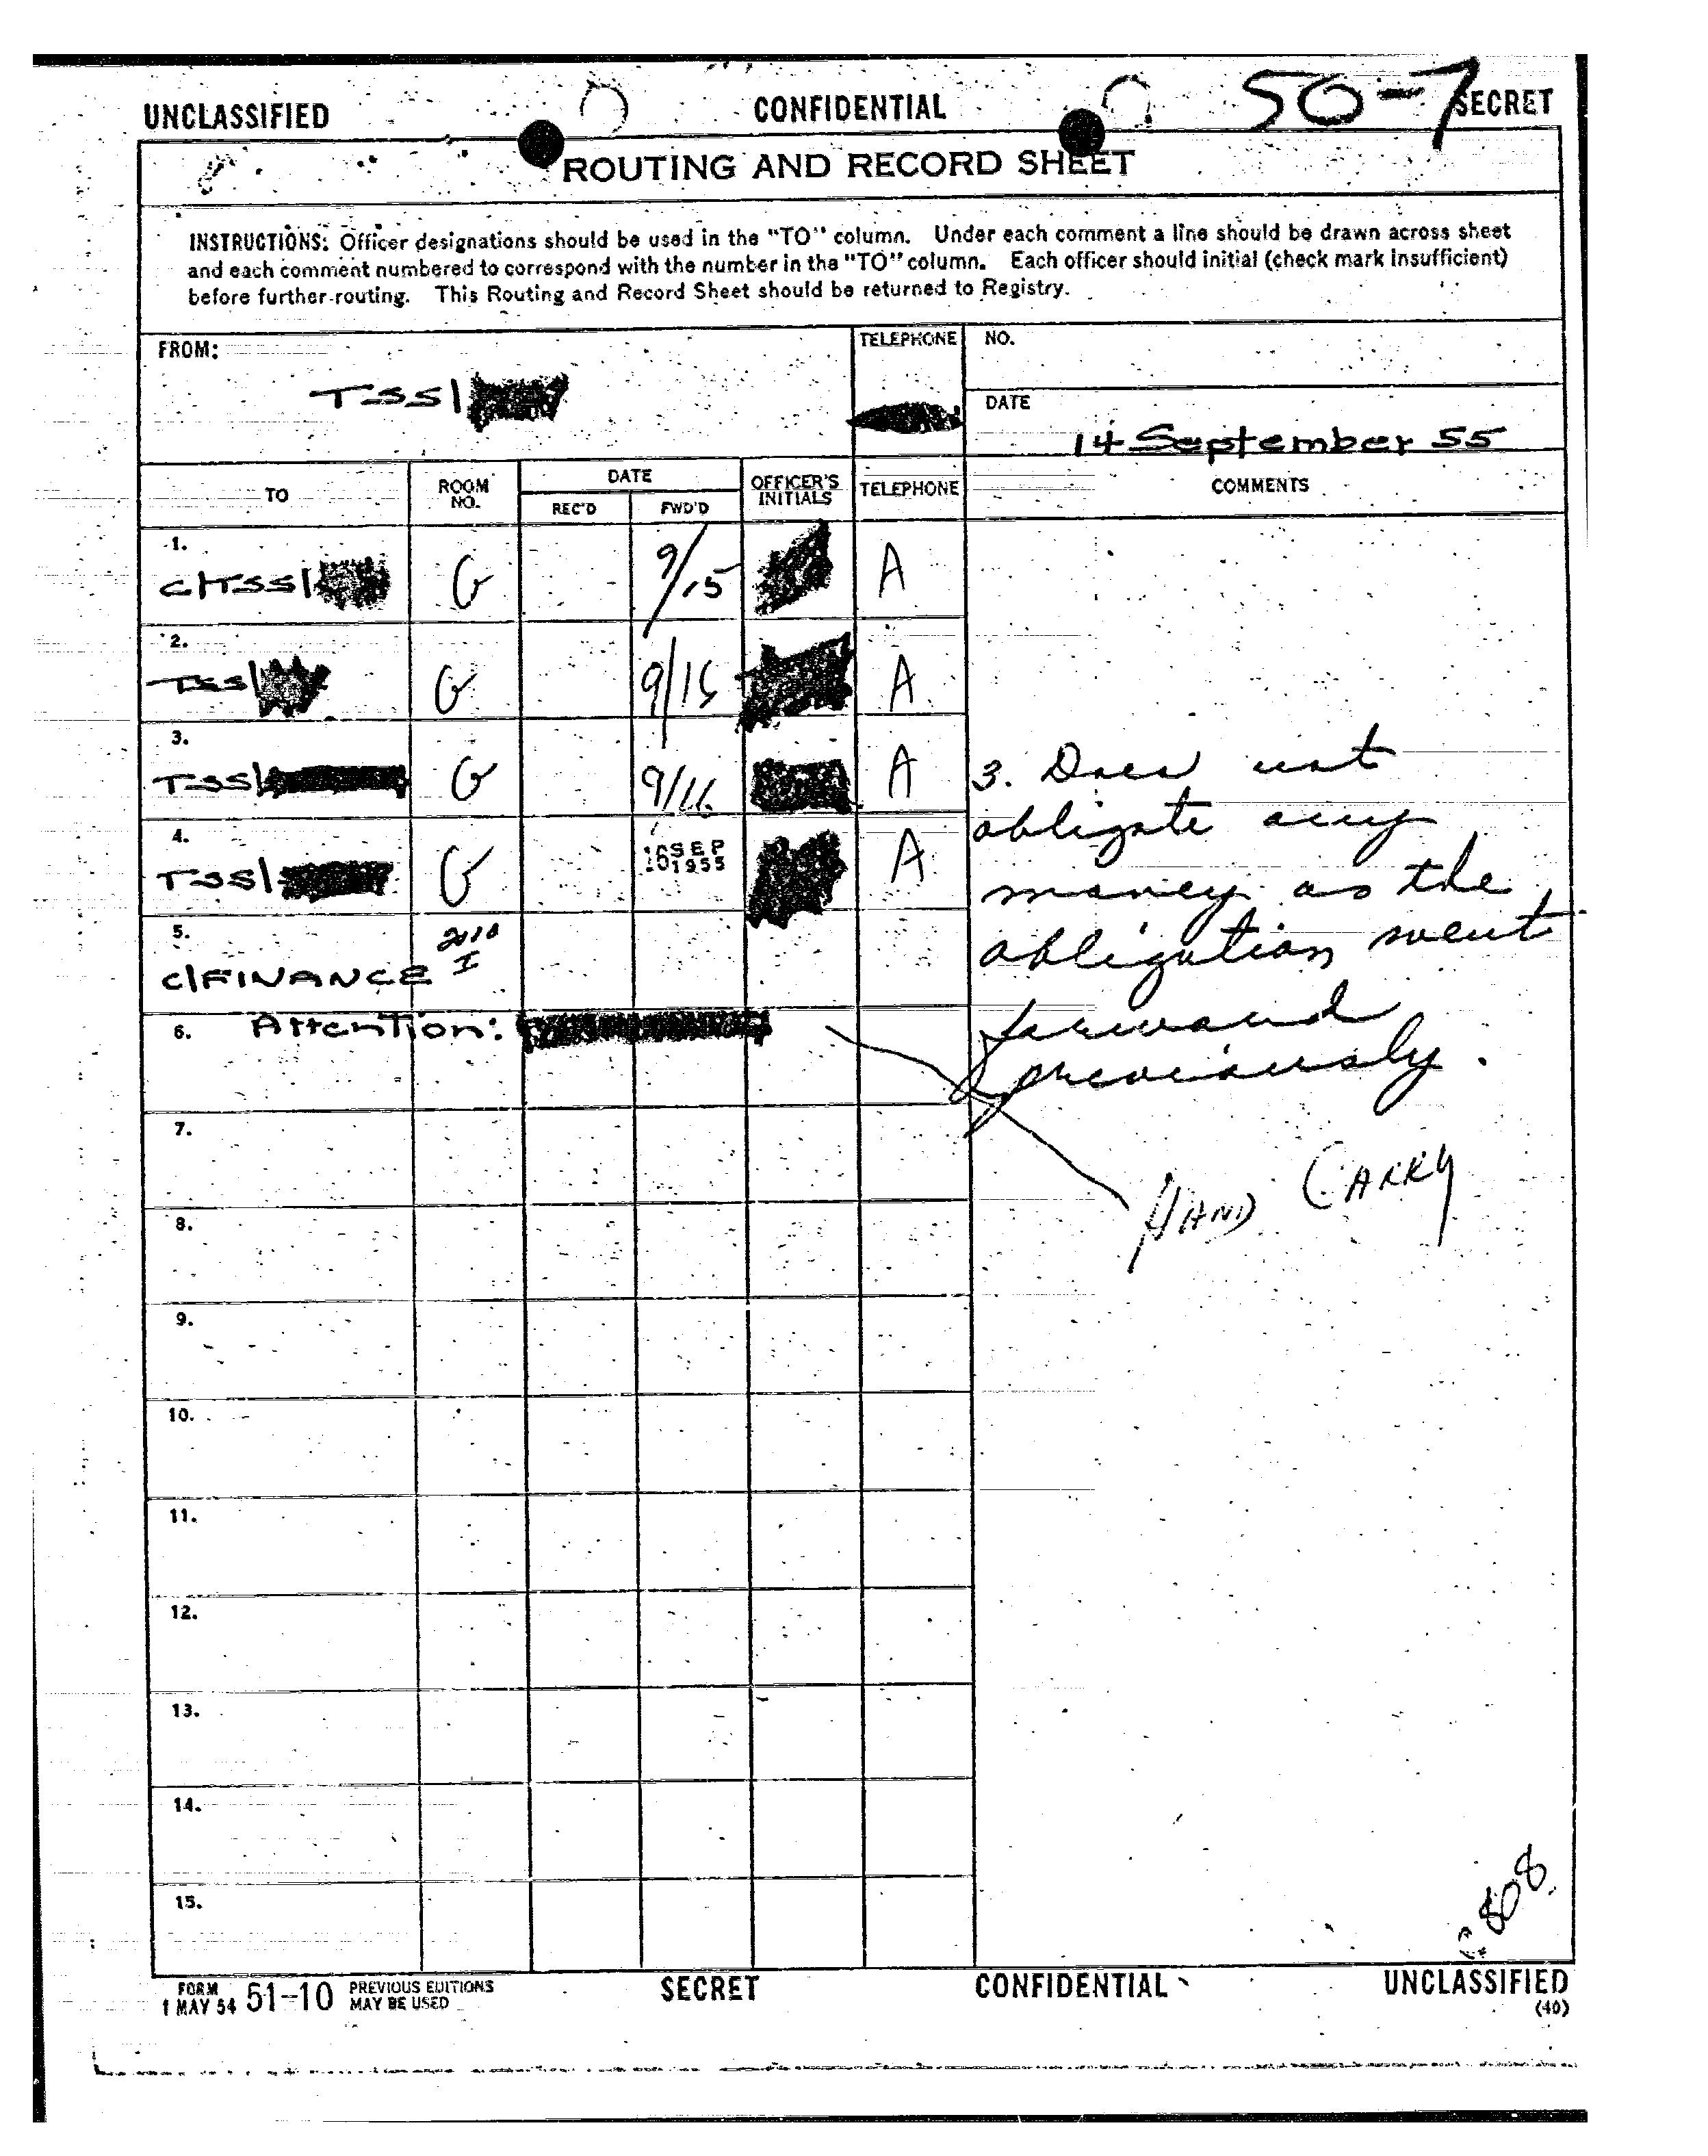 50-7
UNCLASSIFIED CONFIDENTIAL SECRET
ROUTING AND RECORD SHEET
INSTRUCTIONS: Officer designations should be used in the "TO" column. Under each comment a line should be drawn across sheet
and each comment numbered to correspond with the number in the "TO" column. Each officer should initial (check mark insufficient)
before further routing. This Routing and Record Sheet should be returned to Registry.
FROM: TELEPHONE NO.
TSS/
DATE
14 September 55
TO ROOM NO. DATE OFFICER'S INITIALS TELEPHONE COMMENTS
REC'D FWD'D
1.
C/TSS/ G 9/15 A
2.
TSS/ G 9/15 A
3.
TSS/ G 9/16 A
3. Does not
obligate any
money as the
obligation went
forward
previously.
4.
TSS/ G SEP 1955 A
5.
C/FINANCE 2010 I
6. Attention:
HAND CARRY
7.
8.
9.
10.
11.
12.
13.
14.
15.
808
FORM 1 MAY 54 51-10 PREVIOUS EDITIONS MAY BE USED SECRET CONFIDENTIAL UNCLASSIFIED
(40)